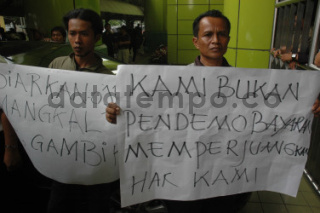 DIARKAN
MANGKAL
GAMBIR
KAMI BUKAN
PENDEMO BAYARAN
MEMPERJUANGKAN
HAK KAMI
datatempo.co